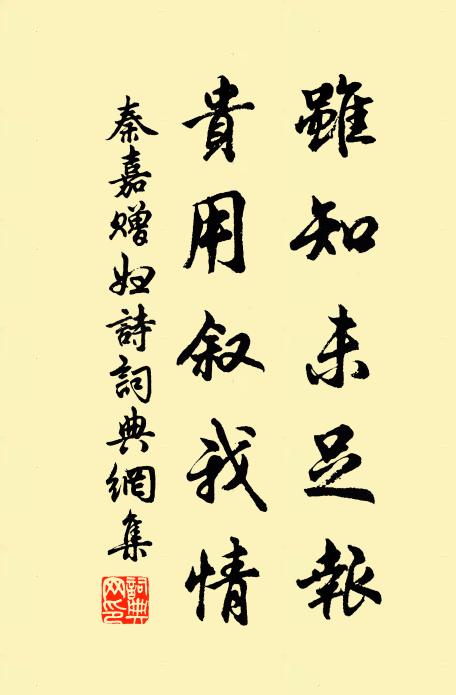 雖知未足報
貴用叙我情
秦嘉贈婦詩詞典網集
詞典网印